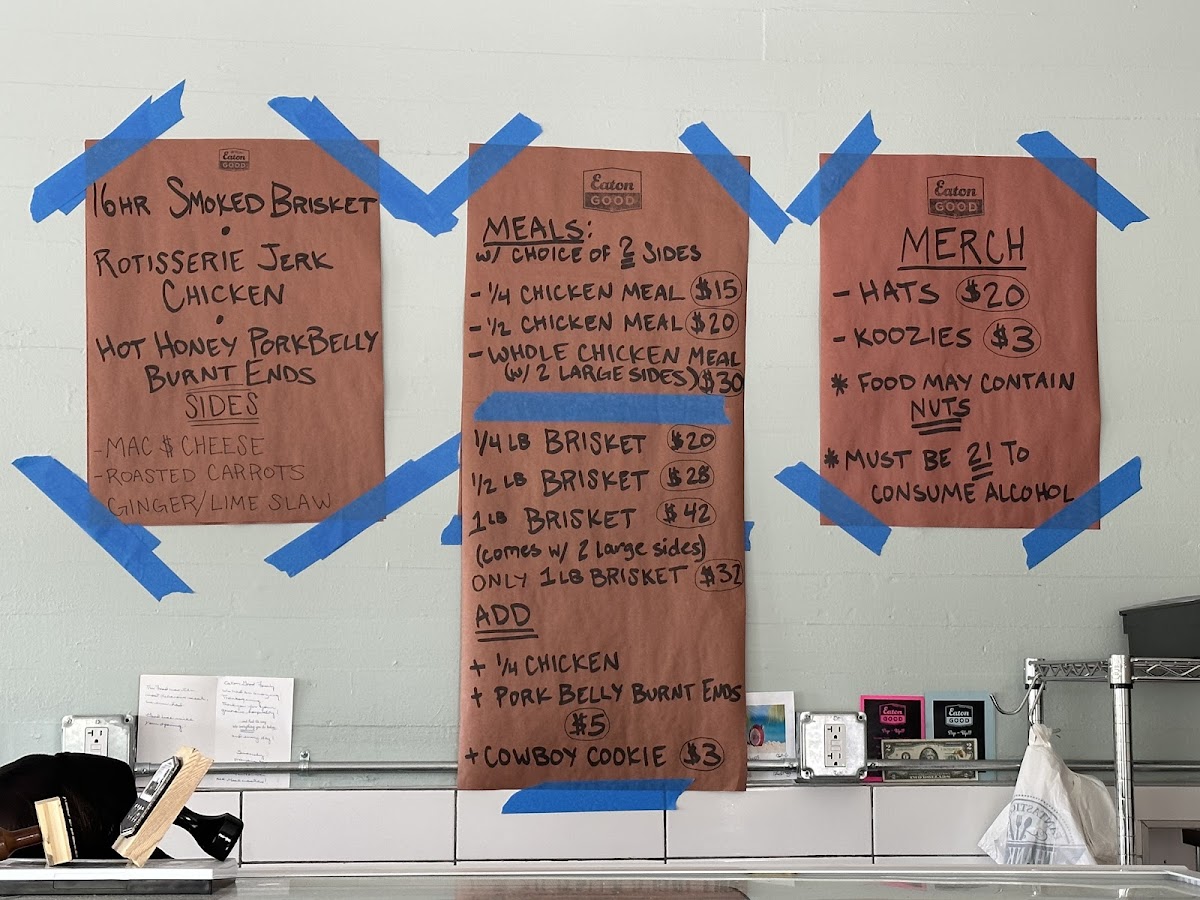 Eaton
GOOD
16HR SMOKED BRISKET
•
ROTISSERIE JERK
CHICKEN
•
HOT HONEY PORKBELLY
BURNT ENDS
SIDES
-MAC $ CHEESE
-ROASTED CARROTS
GINGER/LIME SLAW
Eaton
GOOD
MEALS:
W/ CHOICE OF 2 SIDES
- 1/4 CHICKEN MEAL $15
- 1/2 CHICKEN MEAL $20
- WHOLE CHICKEN MEAL
(W/ 2 LARGE SIDES) $30
1/4 LB BRISKET $20
1/2 LB BRISKET $28
1 LB BRISKET $42
(comes w/ 2 large sides)
ONLY 1 LB BRISKET $32
ADD
+ 1/4 CHICKEN
+ PORK BELLY BURNT ENDS
$5
+ COWBOY COOKIE $3
Eaton
GOOD
MERCH
- HATS $20
- KOOZIES $3
* FOOD MAY CONTAIN
NUTS
* MUST BE 21 TO
CONSUME ALCOHOL
Eaton
GOOD
Pop-Up!!
Eaton
GOOD
Pop-Up!!